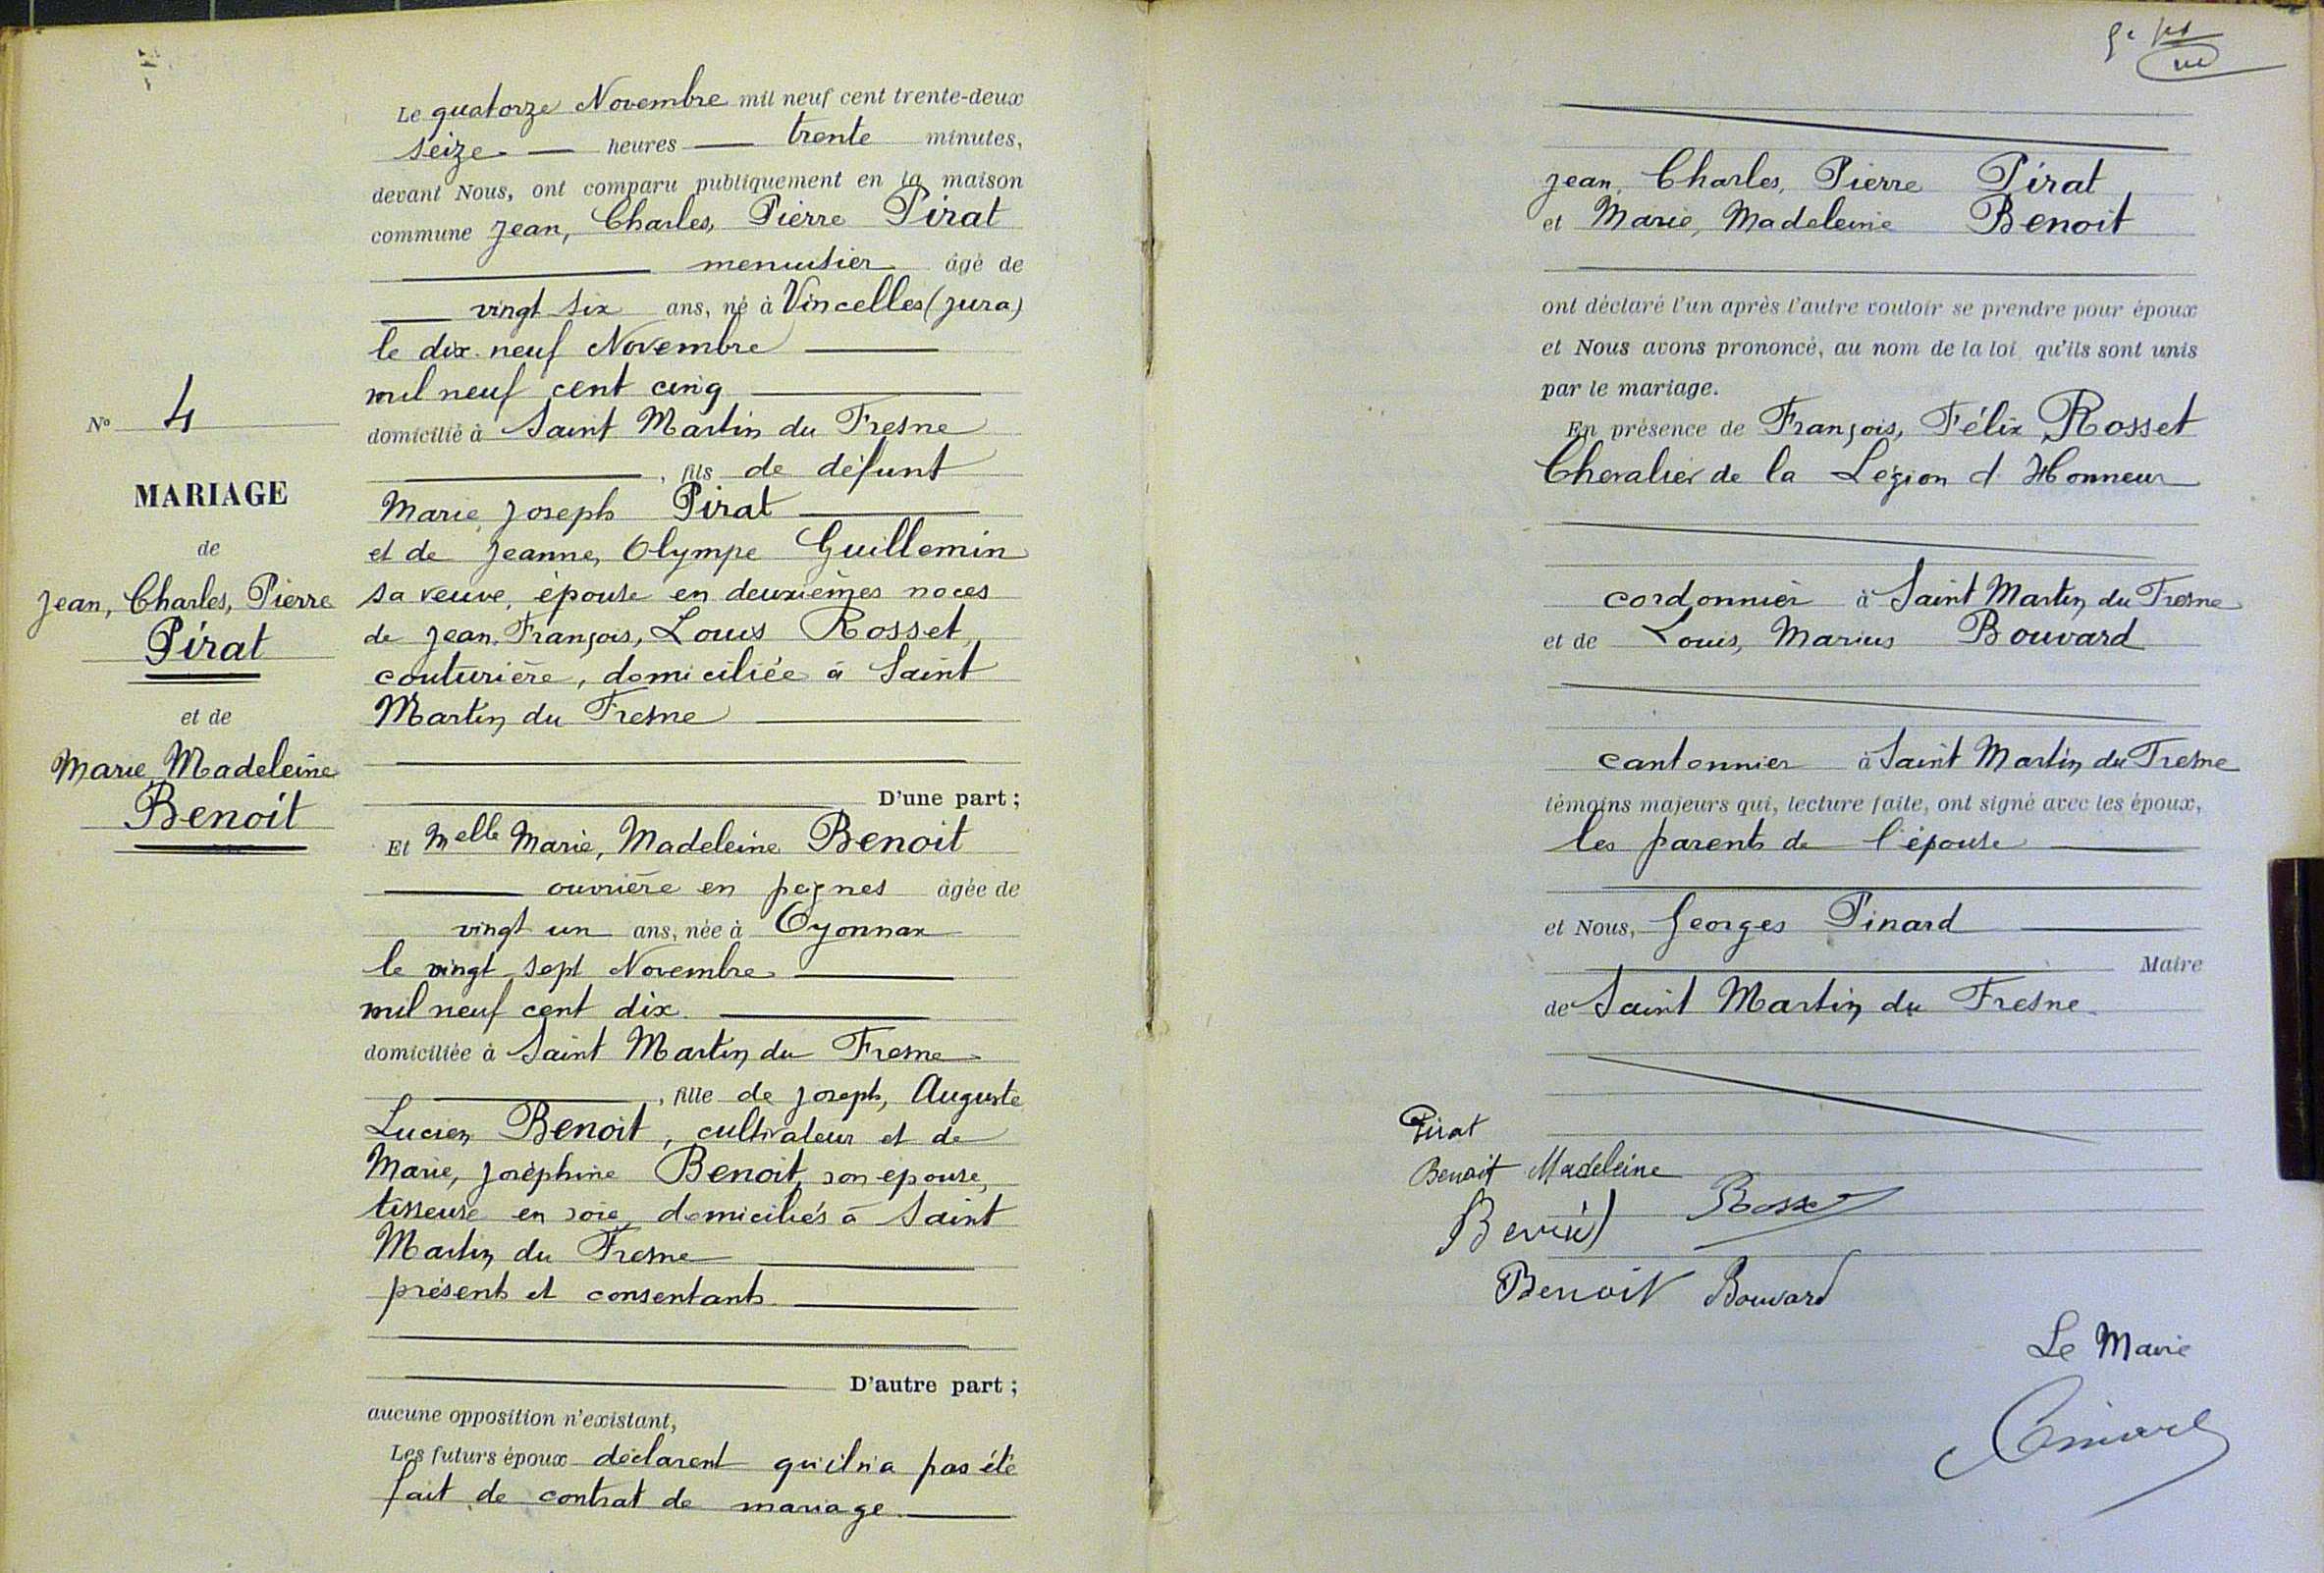 N° 4
MARIAGE
de
Jean, Charles, Pierre
Pirat
et de
Marie, Madeleine
Benoit
Le quatorze Novembre mil neuf cent trente-deux
seize heures trente minutes,
devant Nous, ont comparu publiquement en la maison
commune Jean, Charles, Pierre Pirat
menuisier âgé de
vingt six ans, né à Vincelles (Jura)
le dix-neuf Novembre
mil neuf cent cinq
domicilié à Saint Martin du Fresne
, fils de défunt
Marie Joseph Pirat
et de Jeanne, Olympe Guillemin
sa veuve, épouse en deuxièmes noces
de Jean, François, Louis Rosset,
couturière, domiciliée à Saint
Martin du Fresne
D'une part ;
Et Melle Marie, Madeleine Benoit
ouvrière en peignes âgée de
vingt un ans, née à Oyonnax
le vingt sept Novembre
mil neuf cent dix.
domiciliée à Saint Martin du Fresne
, fille de Joseph, Auguste
Lucien Benoit, cultivateur et de
Marie, Joséphine Benoit, son épouse,
tisseuse en soie, domiciliés à Saint
Martin du Fresne
présents et consentants.
D'autre part ;
aucune opposition n'existant,
Les futurs époux déclarent qu'il n'a pas été
fait de contrat de mariage.
Jean, Charles, Pierre Pirat
et Marie, Madeleine Benoit
ont déclaré l'un après l'autre vouloir se prendre pour époux
et Nous avons prononcé, au nom de la loi qu'ils sont unis
par le mariage.
En présence de François, Félix Rosset
Chevalier de la Légion d'Honneur
cordonnier à Saint Martin du Fresne
et de Louis, Marius Bouvard
cantonnier à Saint Martin du Fresne
témoins majeurs qui, lecture faite, ont signé avec les époux,
les parents de l'épouse
et Nous, Georges Pinard
Maire
de Saint Martin du Fresne.
Pirat
Benoit Madeleine
Benoit Rosset
Benoit Bouvard
Le Maire
Pinard